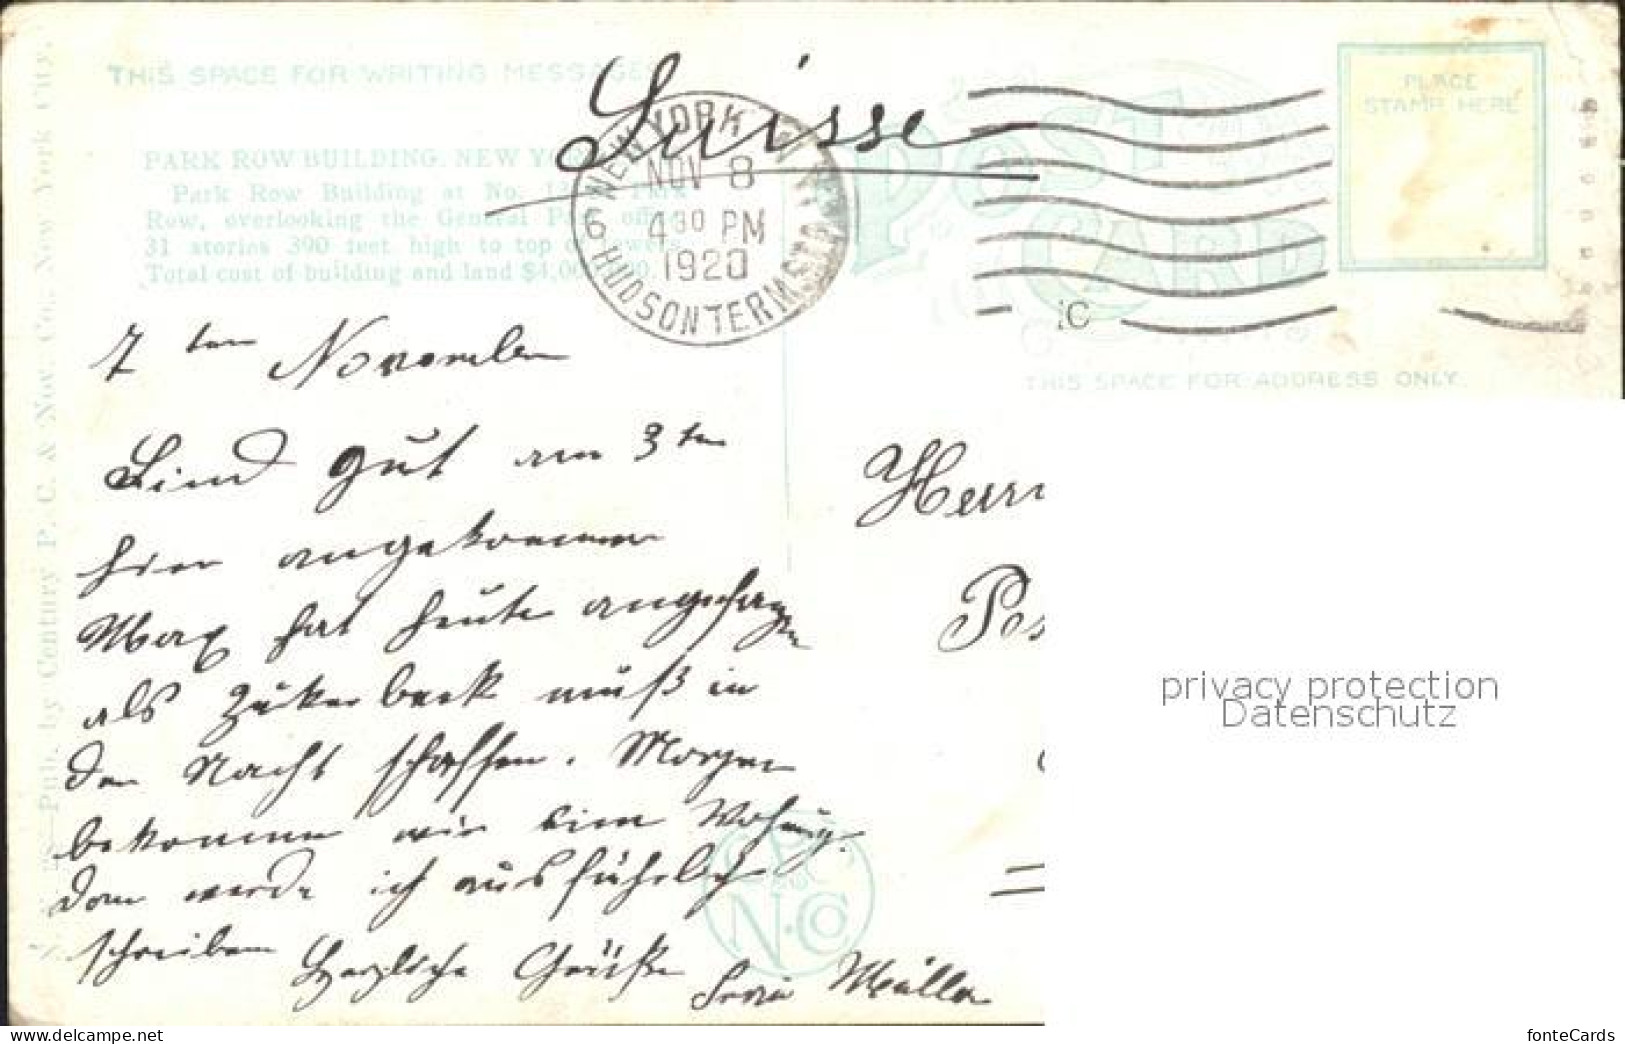 THIS SPACE FOR WRITING MESSAGES
Suisse
PLACE
STAMP HERE
POST
CARD
NEW YORK
NOV 8
4 30 PM
1920
HUDSON TERM STA
6
PARK ROW BUILDING, NEW YO
Park Row Building at No. 13 Park
Row, overlooking the General Post office
31 stories 390 feet high to top of towers.
Total cost of building and land $4,000,000.
THIS SPACE FOR ADDRESS ONLY
7 ten November
Sind gut am 3ten
hier angekommen
Max hat heute angefangen
als Zukerbeck muß in
der Nacht schaffen. Morgen
bekommen wir eine Wohnung.
dann werde ich ausführlich
schreiben Herzliche Grüße
Frau Müller
Herrn
Pos
Pub. by Century P. C. & Nov. Co., New York City.
N. Co
privacy protection
Datenschutz
www.delcampe.net
fonteCards